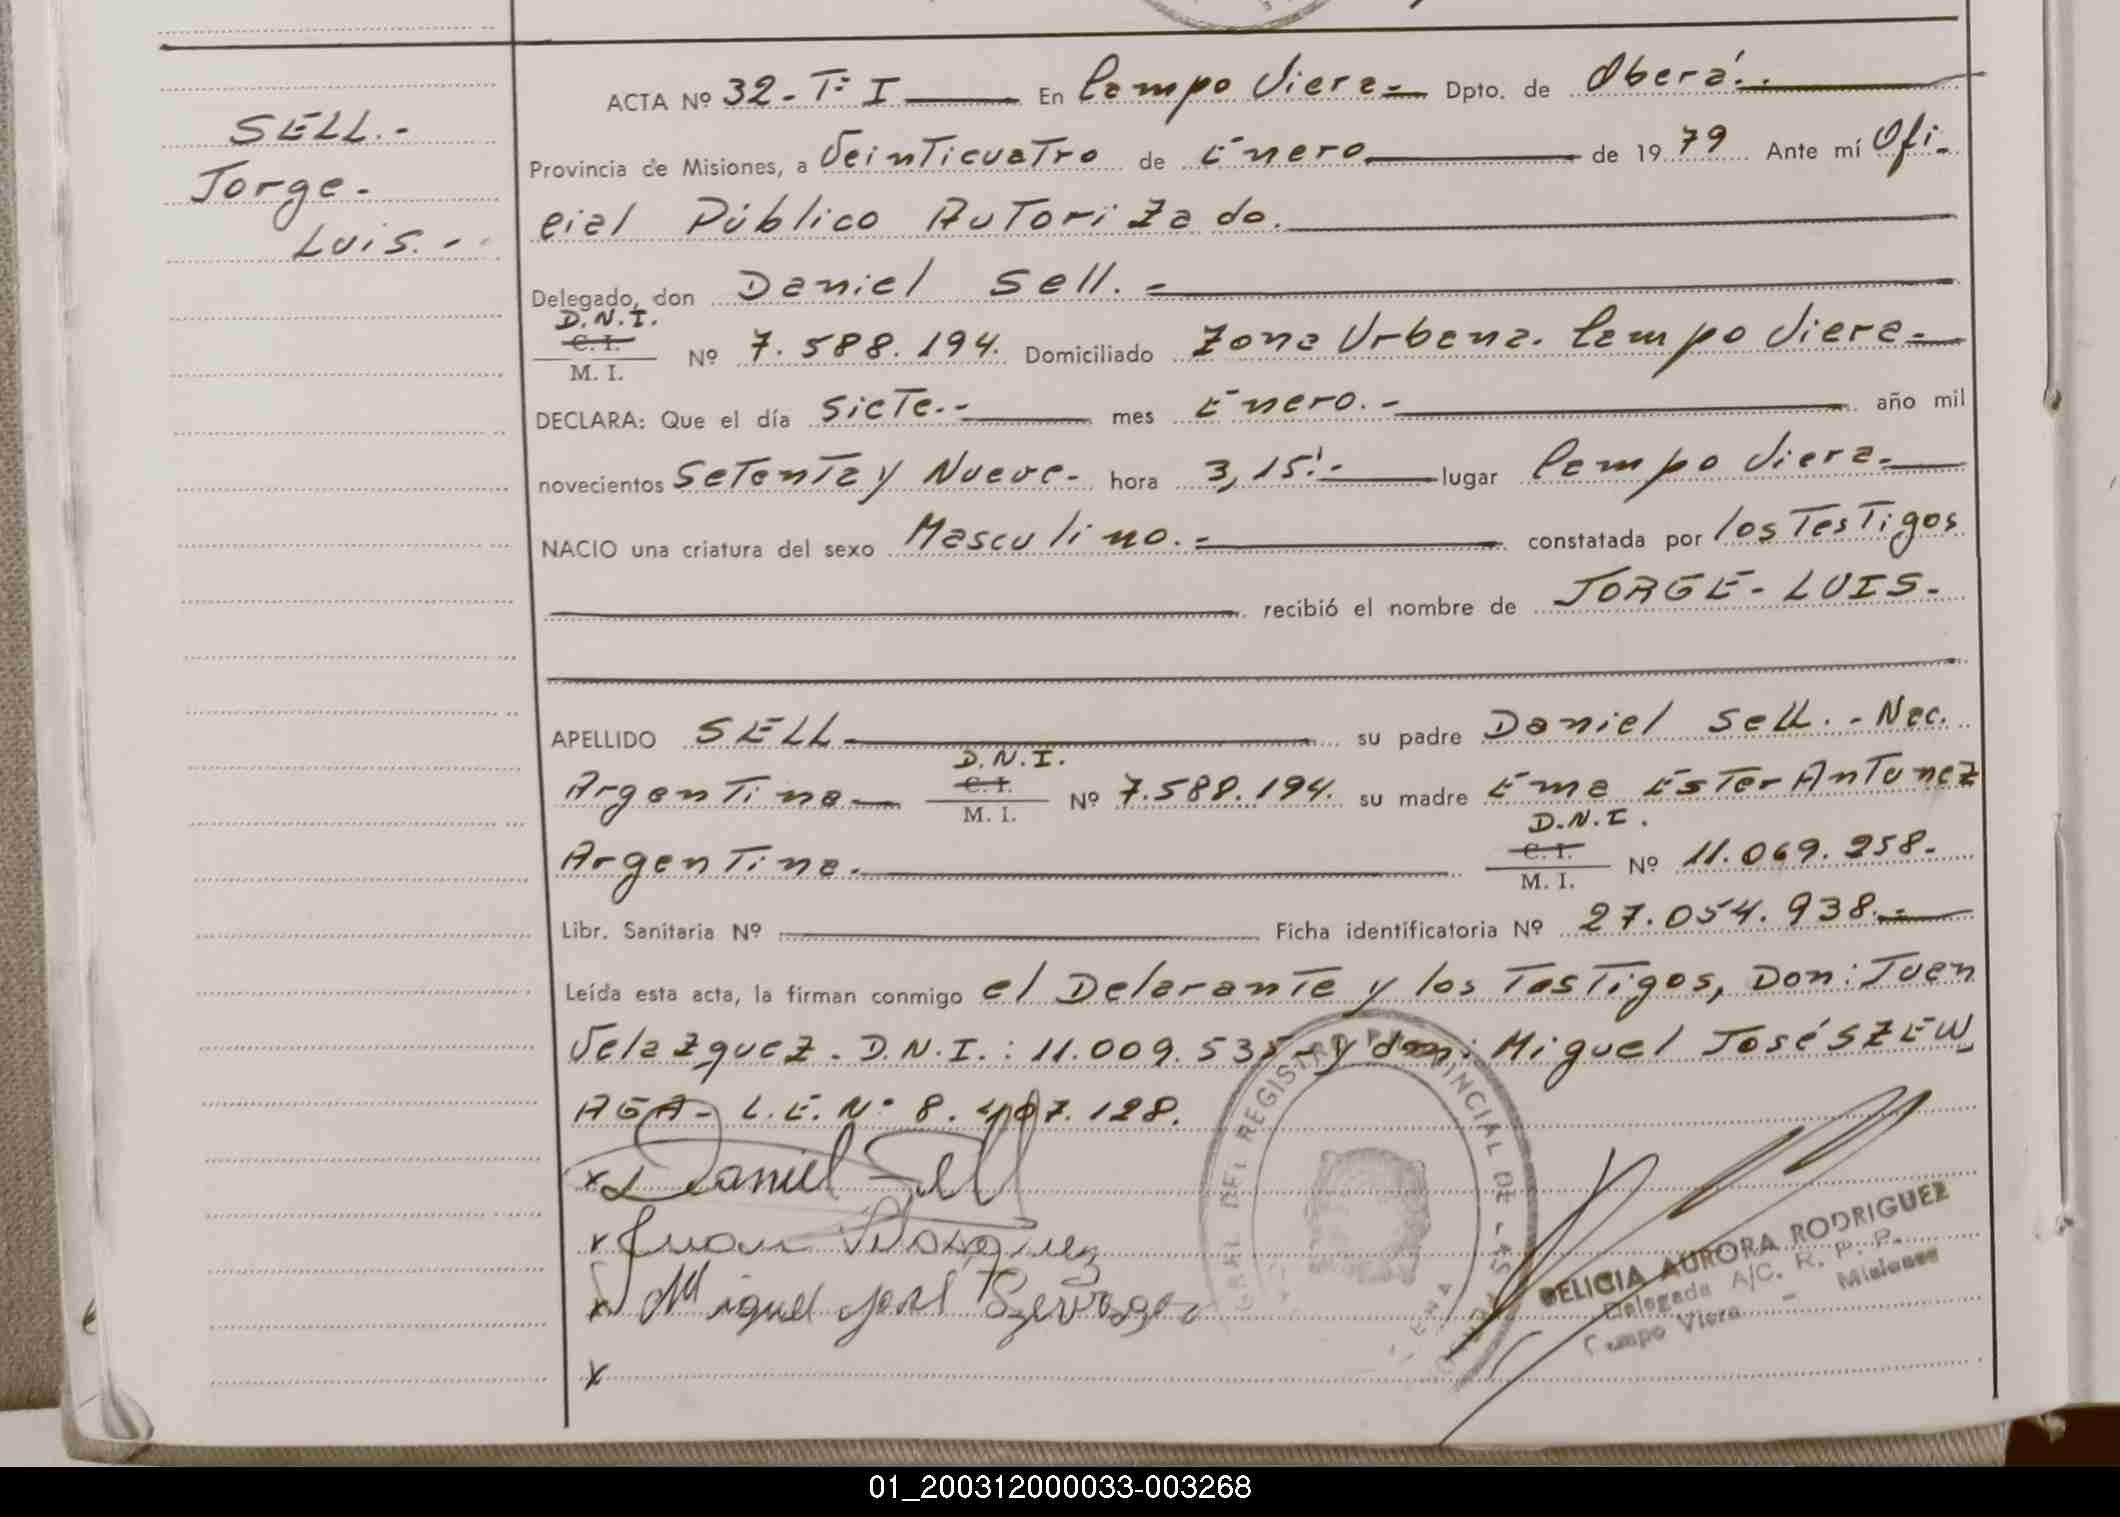 SELL.-
Jorge.-
Luis.-
ACTA Nº 32-Tº I En Campo Viera- Dpto. de Oberá.-
Provincia de Misiones, a Veinticuatro de Enero de 1979 Ante mí Ofi-
cial Público Autorizado.
Delegado, don Daniel Sell.-
D.N.I.
C. I.
M. I.
Nº 7.588.194. Domiciliado Zona Urbana. Campo Viera-
DECLARA: Que el día Siete.- mes Enero.- año mil
novecientos Setenta y Nueve- hora 3,15'.- lugar Campo Viera-
NACIO una criatura del sexo Masculino.- constatada por los Testigos
recibió el nombre de JORGE-LUIS-
APELLIDO SELL su padre Daniel Sell.-Nac.
D.N.I.
Argentina- C. I. Nº 7.588.194. su madre Ema Ester Antunez
M. I.
D.N.I.
Argentina. C. I. Nº 11.069.258-
M. I.
Libr. Sanitaria Nº Ficha identificatoria Nº 27.054.938.-
Leída esta acta, la firman conmigo el Delarante y los Testigos, Don: Juan
Velazquez. D.N.I.: 11.009.535- y don: Miguel José SZEW
AGA- L.E. Nº 8.407.128.
x Daniel Sell
x Juan Velazquez
x Miguel José Szewaga
x
DEL REGISTRO PROVINCIAL DE LAS
DELICIA AURORA RODRIGUEZ
Delegada A/C. R. P. P.
Campo Viera - Misiones
01_200312000033-003268